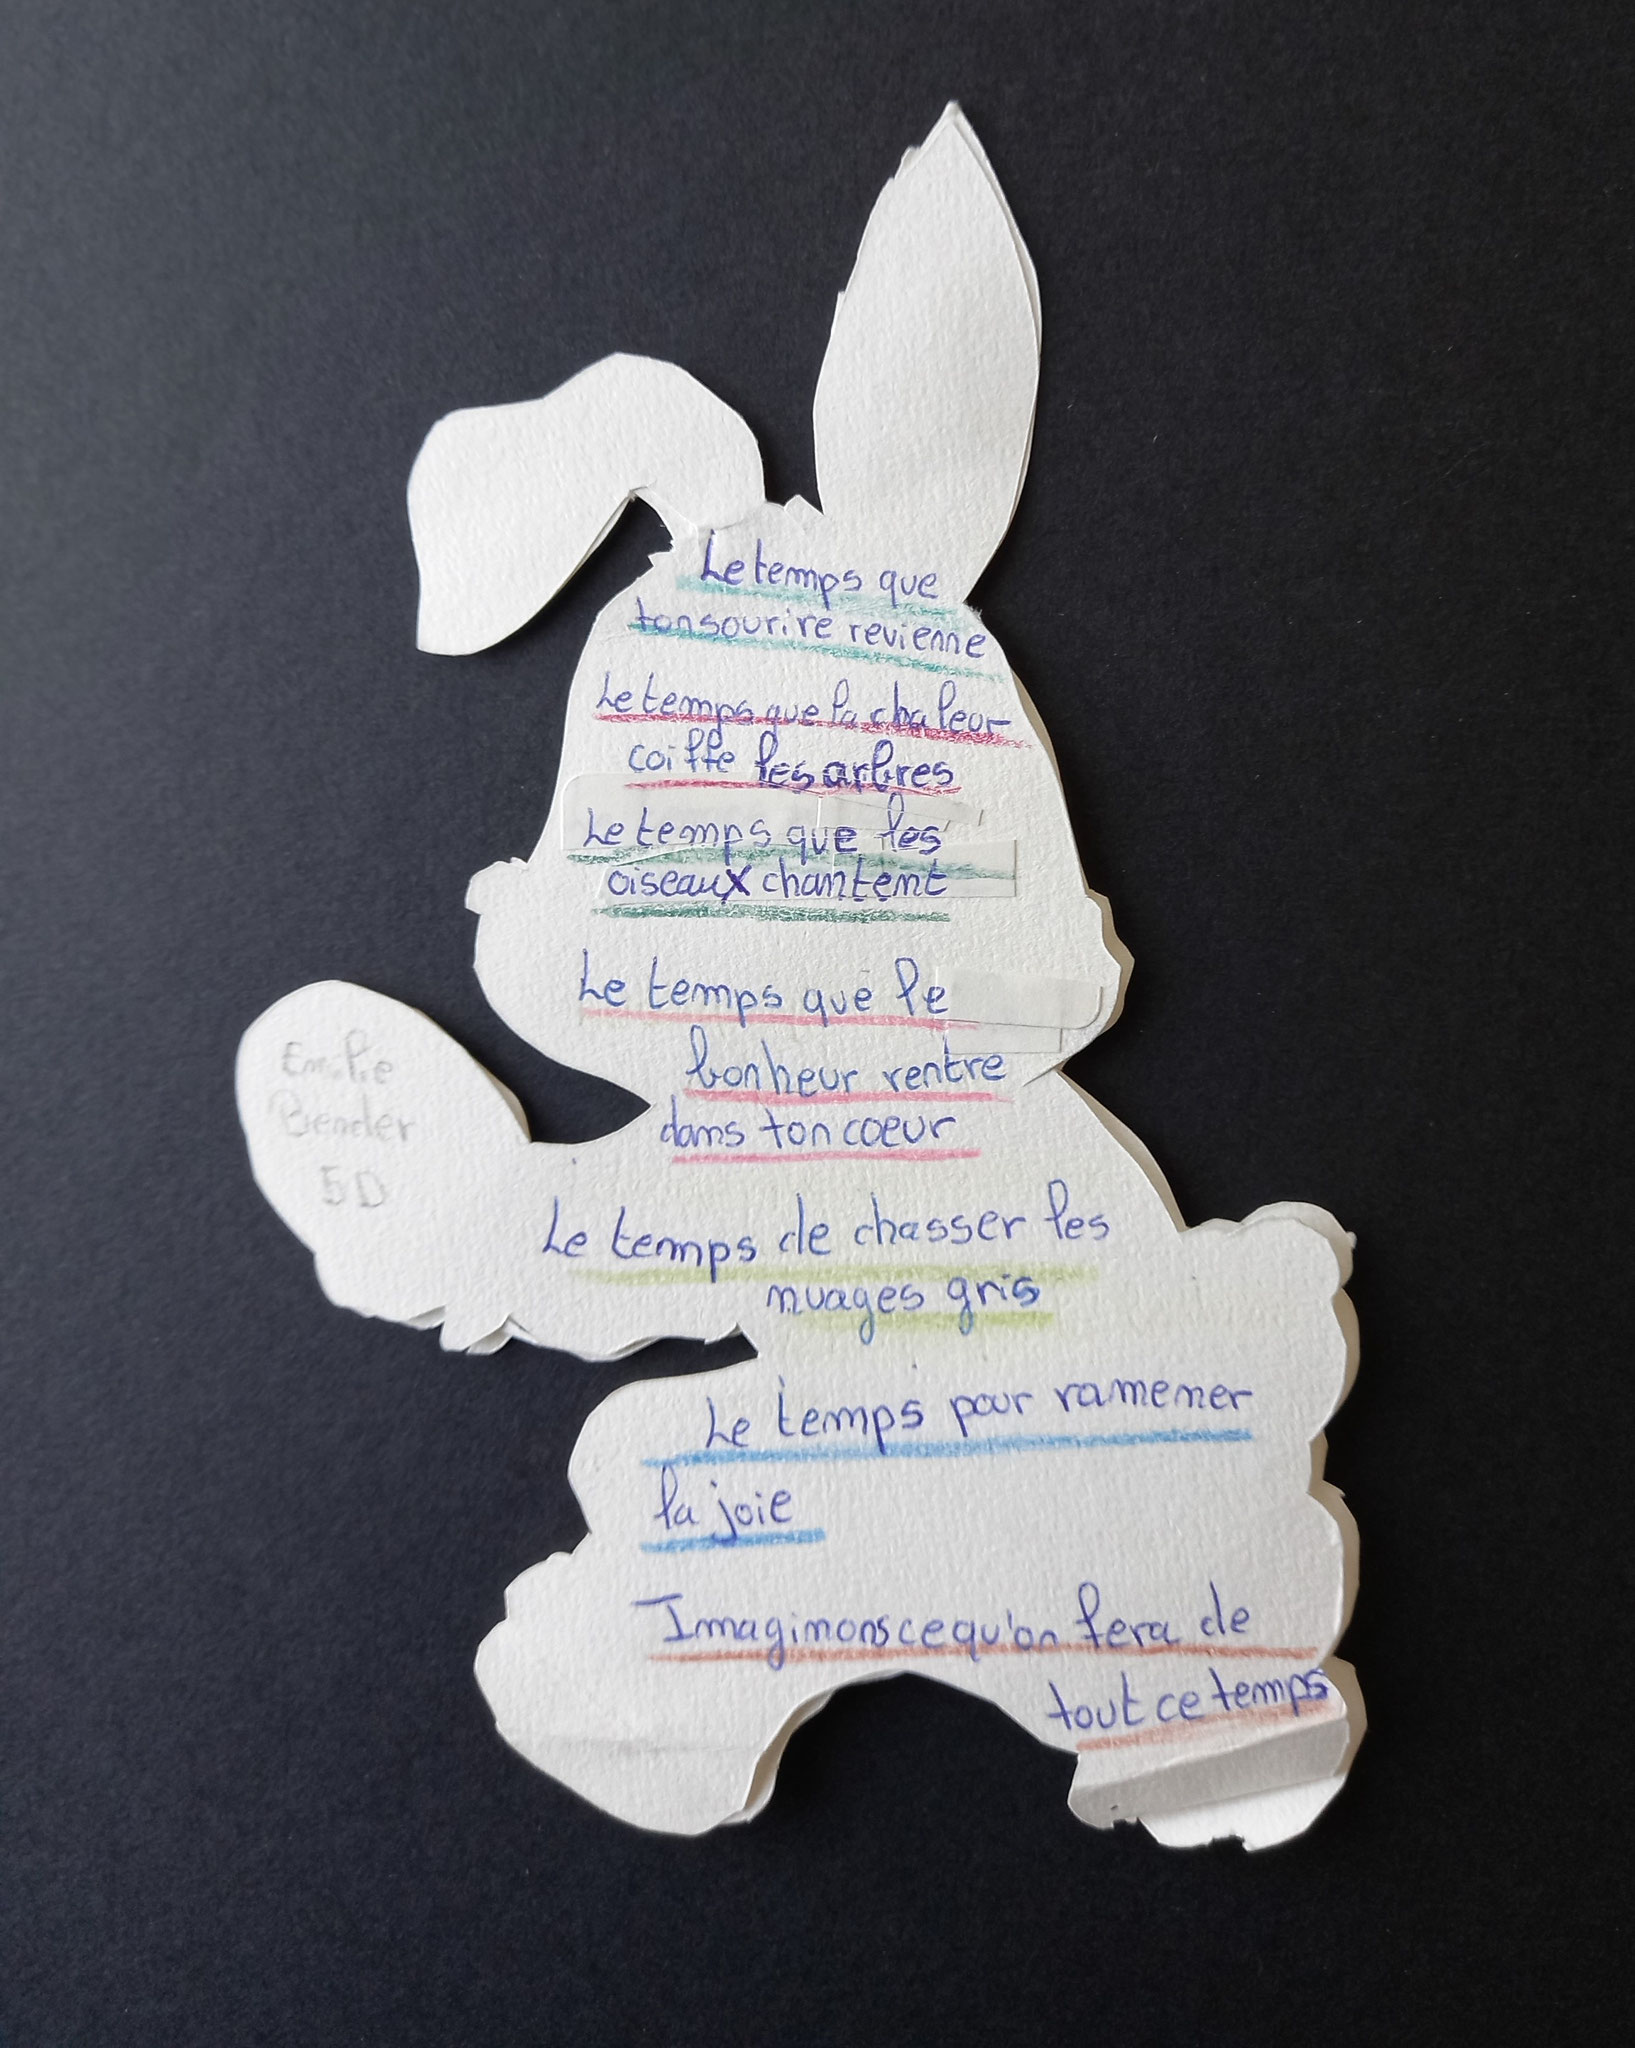 Le temps que
ton sourire revienne
Le temps que la chaleur
coiffe les arbres
Le temps que les
oiseaux chantent
Le temps que le
bonheur rentre
dans ton coeur
Emilie
Bender
5D
Le temps de chasser les
nuages gris
Le temps pour ramener
la joie
Imaginons ce qu'on fera de
tout ce temps